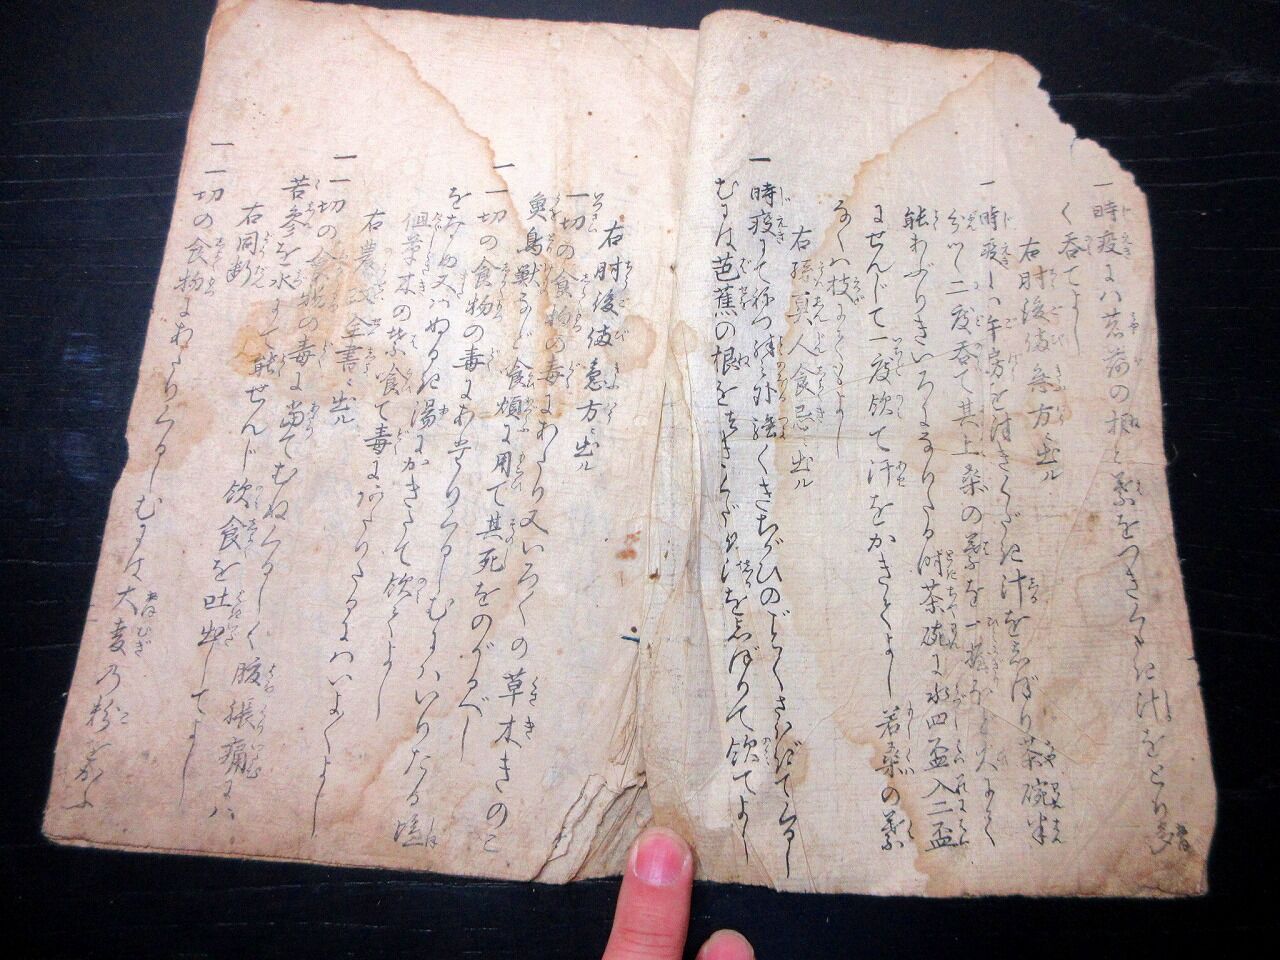 一 時疫にハ茗荷の根と葉をつきくだき汁をとり多
く呑てよし
右肘後備急方ニ出ル
一 時疫にハ牛房をつきくだき汁をしぼり茶碗半
分ツヽ二度呑て其上桑の葉を一握ほど火にてよく
能あぶりきいろになりたる時茶碗に水四盃入二盃
にせんじて一度飲て汗をかきてよし 若桑の葉
なくハ枝にてもよし
右孫真人食忌ニ出ル
一 時疫にてねつ殊之外強くきちがひのごとくさはぎてくるし
むには芭蕉の根をつきくだき汁をしぼりて飲てよし
右肘後備急方ニ出ル
一切の食物の毒にあたり又いろ〱の草木きのこ
魚鳥獣など食煩に用て其死をのがるべし
一 一切の食物の毒にあたりくるしむにハいりたる塩
をなめ又ハぬるき湯にかきたて飲てよし
但草木の葉喰て毒にあたりたるにハいよ〱よし
右農政全書ニ出ル
一 一切の食物の毒に当てむねくるしく腹張痛にハ
苦参を水にて能せんじ飲食を吐出してよし
右同断
一 一切の食物にあたりくるしむには大麦乃粉をかふ